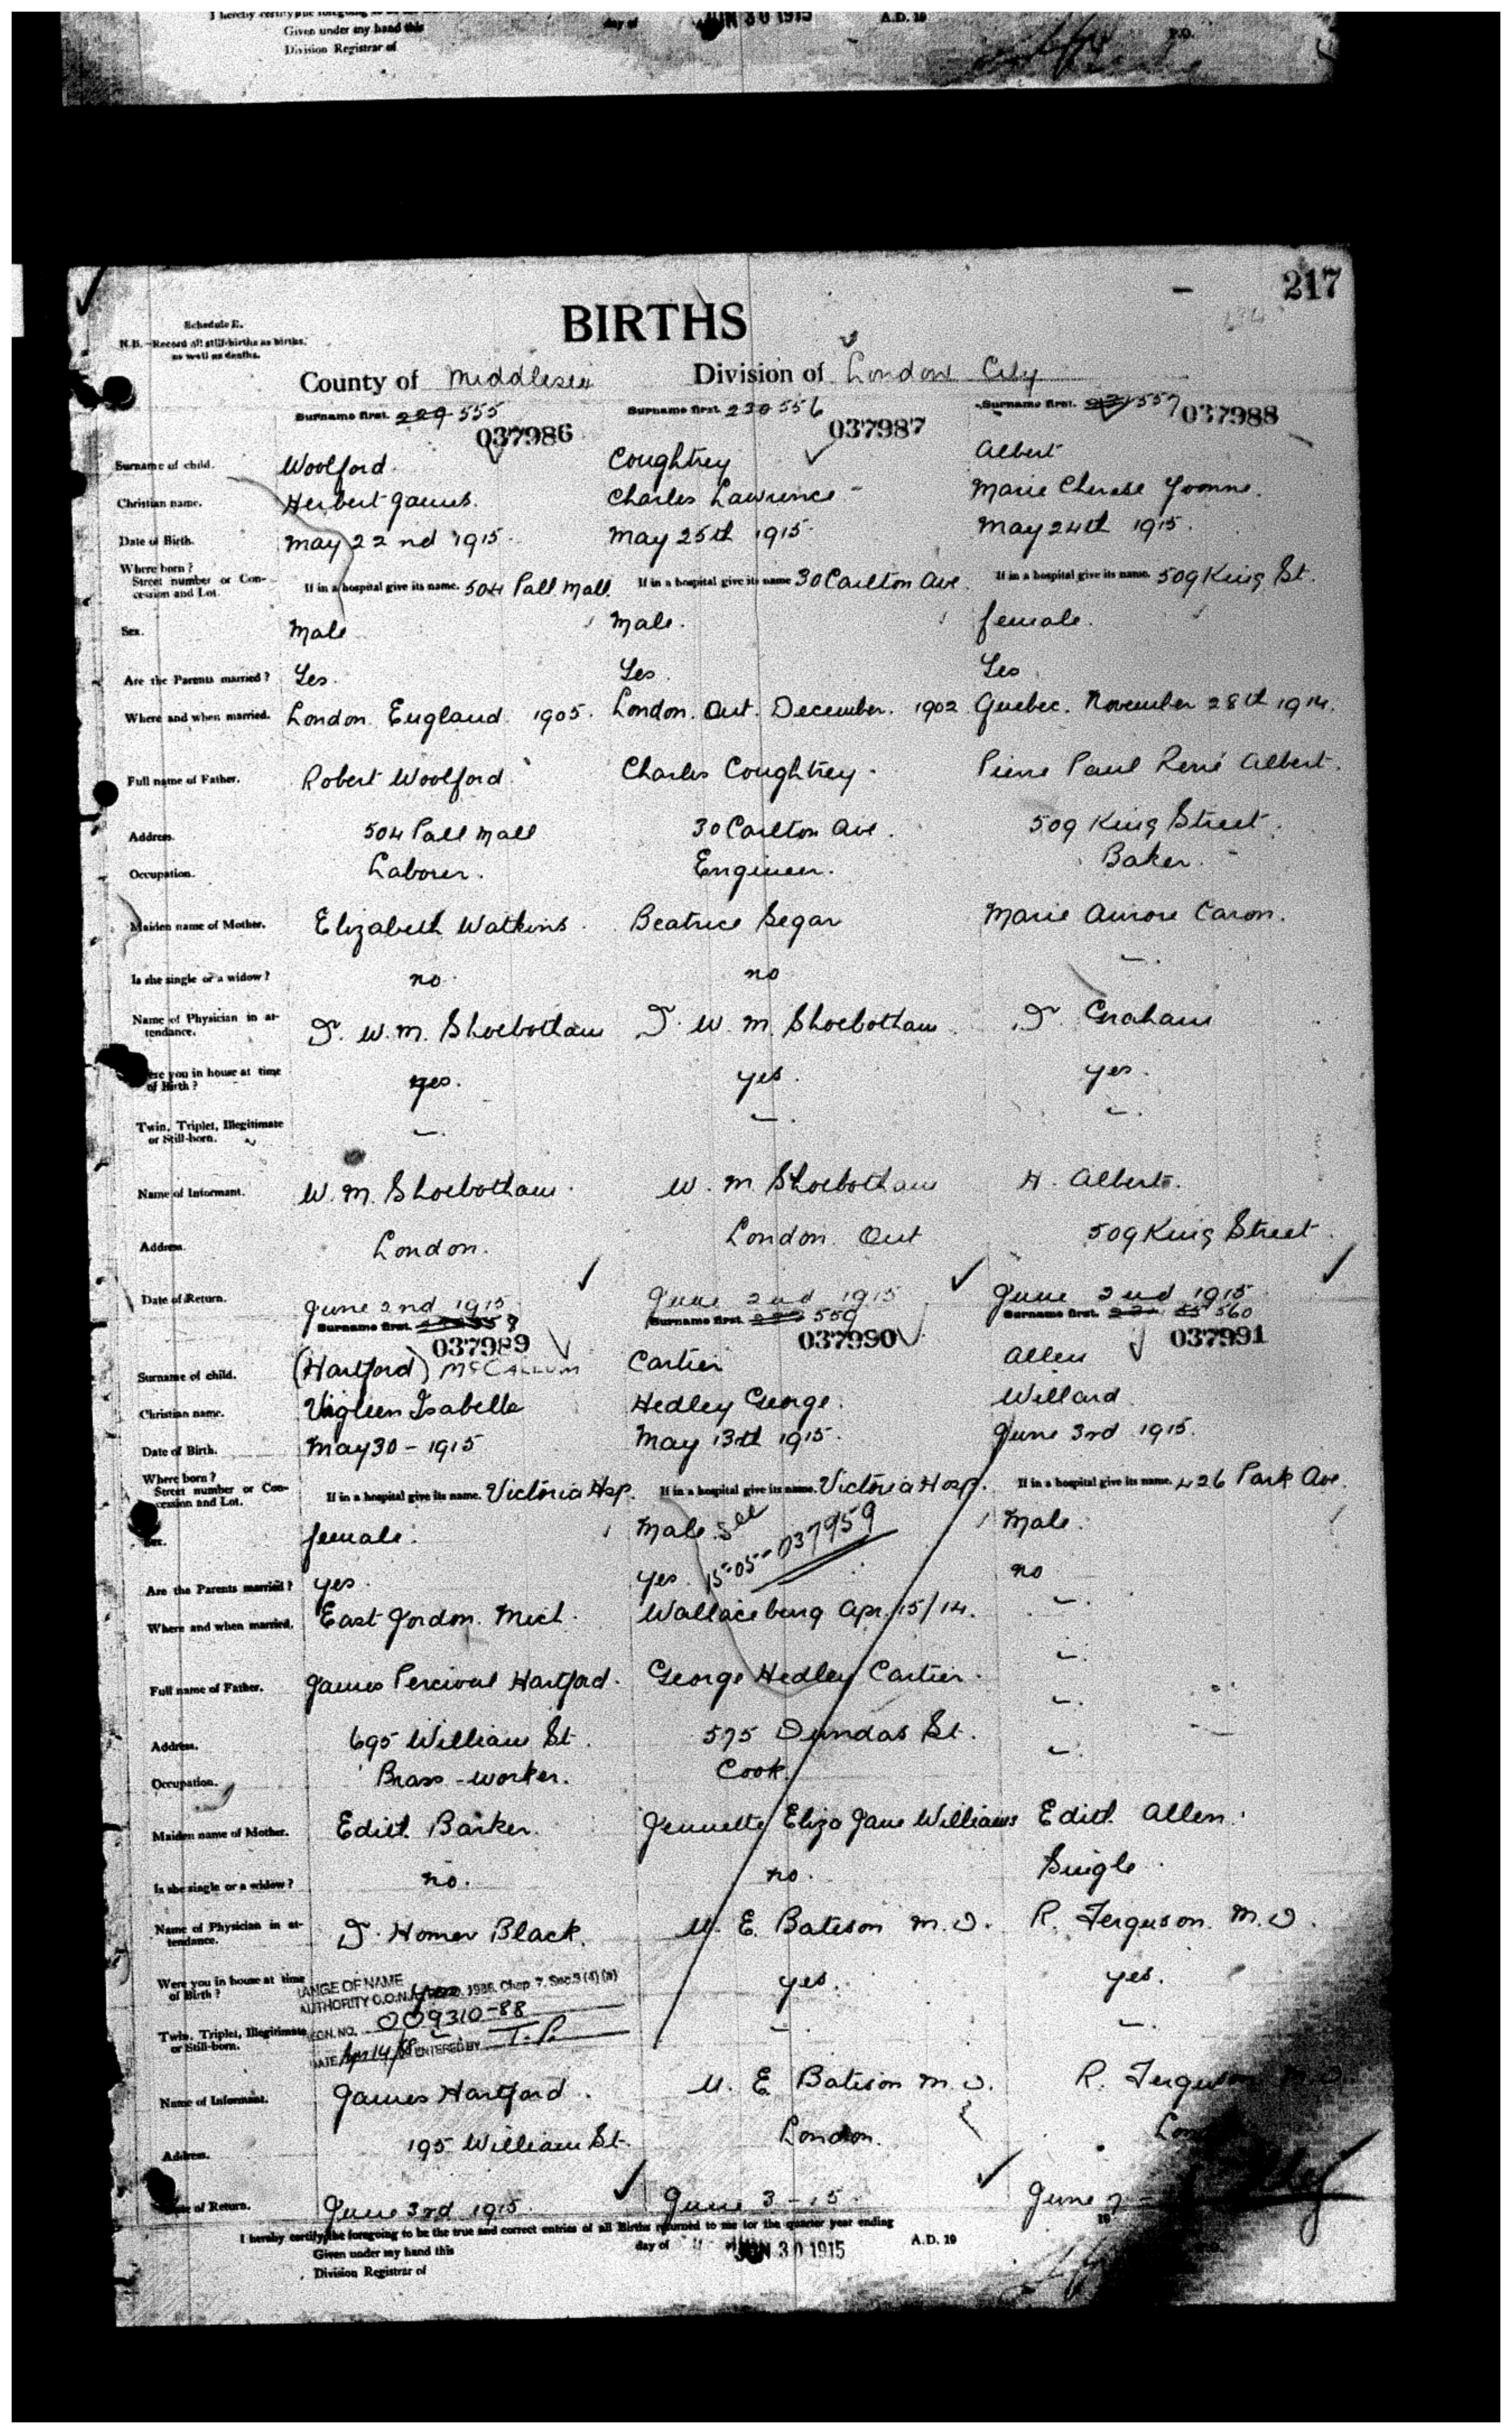 I hereby certify the foregoing
Given under my hand this day of JUN 30 1915 A.D. 19
Division Registrar of P.O.
217
Schedule B.
N.B.—Record all still-births as births, as well as deaths.
BIRTHS
County of Middlesex Division of London City
Surname first. 229 555 Surname first. 230 556 Surname first. 231 557
037986 037987 037988
Surname of child. Woolford Coughtrey Albert
Christian name. Herbert James. Charles Lawrence Marie Cherese Yvonne.
Date of Birth. May 22nd 1915. May 25th 1915. May 24th 1915.
Where born?
Street number or Concession and Lot. If in a hospital give its name. 504 Pall Mall. If in a hospital give its name 30 Carlton Ave. If in a hospital give its name. 509 King St.
Sex. Male Male. female.
Are the Parents married? Yes. Yes. Yes
Where and when married. London England 1905. London. Ont. December. 1902 Quebec. November 28th 1914.
Full name of Father. Robert Woolford. Charles Coughtrey. Pierre Paul René Albert.
Address. 504 Pall Mall 30 Carlton Ave. 509 King Street.
Occupation. Laborer. Engineer. Baker.
Maiden name of Mother. Elizabeth Watkins. Beatrice Segar Marie Aurore Caron.
Is she single or a widow? no. no —.
Name of Physician in attendance. D. W. M. Shoebotham D. W. M. Shoebotham D. Graham
Were you in house at time of Birth? yes. yes. yes.
Twin, Triplet, Illegitimate or Still-born. —. —. —.
Name of Informant. W. M. Shoebotham. W. M Shoebotham H. Albert.
Address. London. London. Ont 509 King Street.
Date of Return. June 2nd 1915 June 2nd 1915 June 2nd 1915
Surname first. 558 Surname first. 559 Surname first. 560
037989 037990 037991
Surname of child. (Hartford) McCALLUM Cartier Allen
Christian name. Isabelle Hedley George. Willard
Date of Birth. May 30 - 1915 May 13th 1915. June 3rd 1915.
Where born?
Street number or Concession and Lot. If in a hospital give its name. Victoria Hsp. If in a hospital give its name. Victoria Hosp. If in a hospital give its name. 426 Park Ave.
Sex. female. Male. See Male.
15-05-037959
Are the Parents married? yes. yes. no
Where and when married. East Jordon. Mich. Wallaceburg Apr. 15/14. —.
Full name of Father. James Percival Hartford. George Hedley Cartier. —.
Address. 695 William St. 575 Dundas St. —.
Occupation. Brass-worker. Cook. —.
Maiden name of Mother. Edith Barker. Jennette Eliza Jane Williams Edith Allen.
Is she single or a widow? no. no. Single.
Name of Physician in attendance. D. Homer Black. M. E. Bateson M.D. R. Ferguson. M.D.
Were you in house at time of Birth? yes yes. yes.
ANGE OF NAME
AUTHORITY C.O.N. 1986, Chap. 7, Sec. 3 (4) (a)
REGN. NO. 009310-88
Twin, Triplet, Illegitimate or Still-born. — — —.
DATE Apr 14/88 ENTERED BY T.P.
Name of Informant. James Hartford. M. E Bateson M.D. R. Ferguson M.D.
Address. 195 William St. London. Lon
Date of Return. June 3rd 1915. June 3-15. June 7
I hereby certify the foregoing to be the true and correct entries of all Births returned to me for the quarter year ending 19
Given under my hand this day of JUN 30 1915 A.D. 19
Division Registrar of